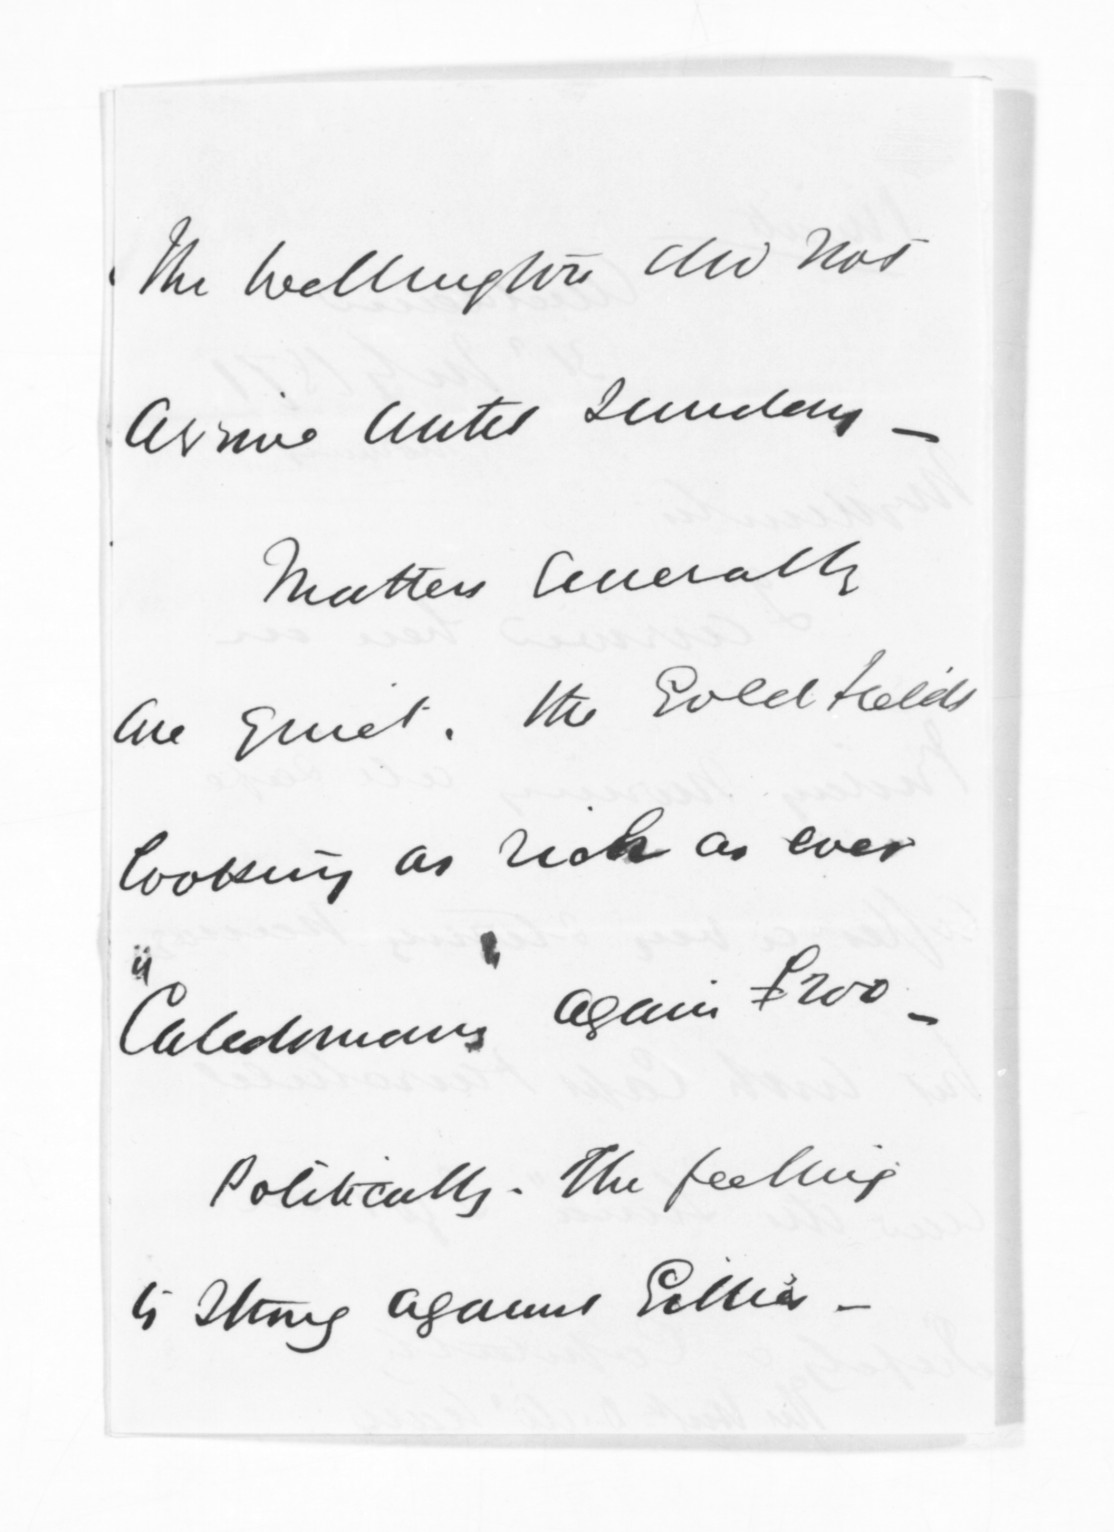 The Wellington did not
arrive until Sunday –
Matters Generally
are quiet. the Gold fields
looking as rich as ever
"Caledonians" again £200 –
Politically. The feeling
is strong against Gillies –